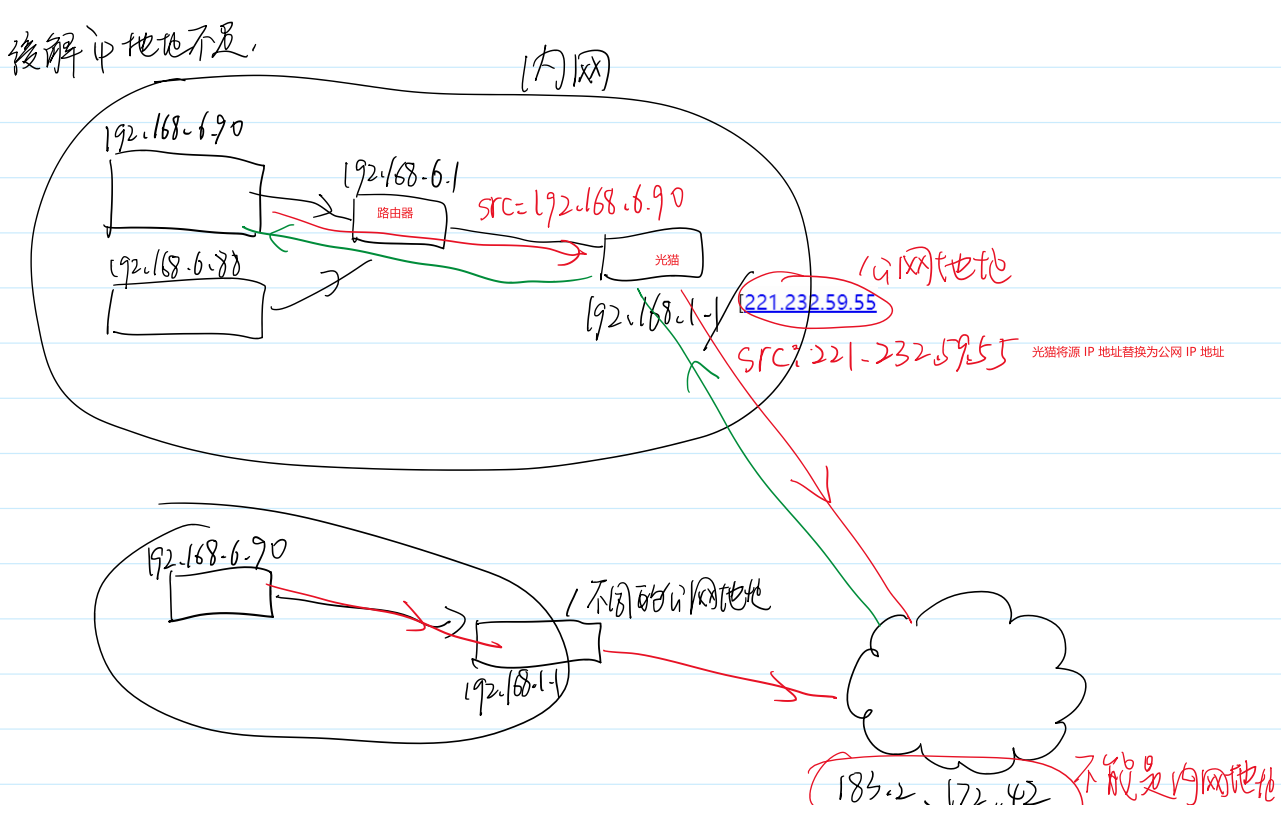 缓解ip地址不足.
内网
192.168.6.90
192.168.6.1
路由器
src=192.168.6.90
192.168.6.88
光猫
公网地址
192.168.1.1/
221.232.59.55
src:221.232.59.55
光猫将源 IP 地址替换为公网 IP 地址
192.168.6.90
/不同的公网地址
192.168.1.1
183.2.172.42
不能是内网地址